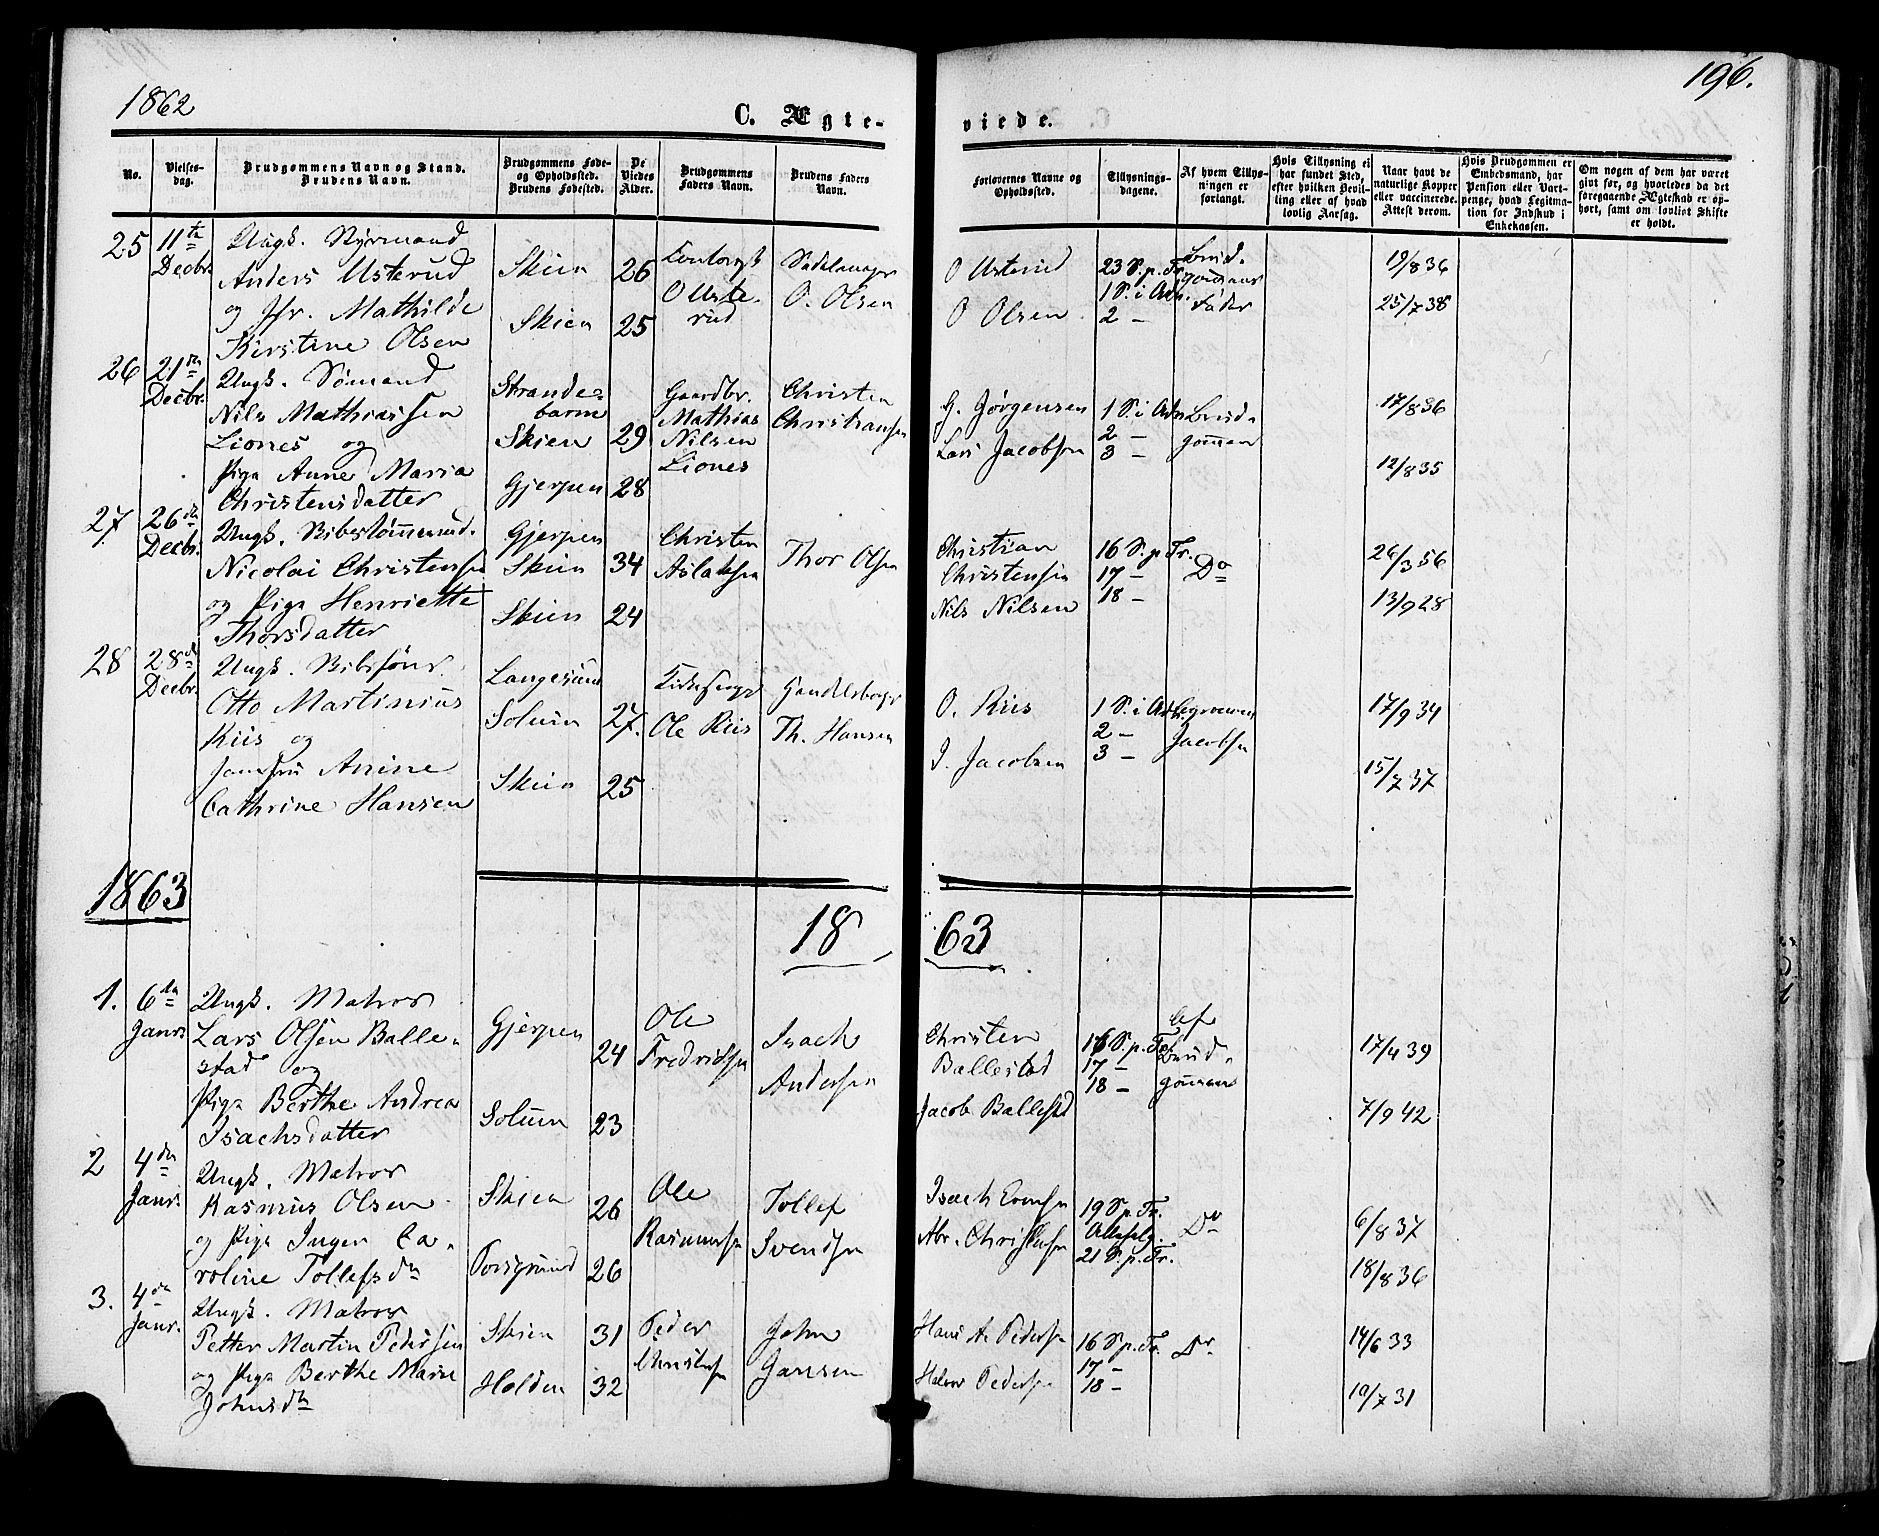 1862
C. Ægte-
viede.
196.
No.
Vielses-
dag.
Brudgommens Navn og Stand.
Brudens Navn.
Brudgommens Føde-
og Opholdssted.
Brudens Fødested.
De
Viedes
Alder.
Brudgommens
Faders Navn.
Brudens Faders
Navn.
Forlovernes Navne og
Opholdssted.
Tillysnings-
dagene.
Af hvem Tillys-
ningen er
forlangt.
Hvis Tillysning ei
har fundet Sted,
efter hvilken Bevil-
ling eller af hvad
lovlig Aarsag.
Naar havt de
naturlige Kopper
eller vaccinerede.
Attest derom.
Hvis Brudgommen er
Embedsmand, har
Pension eller Vart-
penge, hvad Legitima-
tion for Indskud i
Enkekassen.
Om nogen af dem har været
gift før, og hvorledes da det
foregaaende Ægteskab er op-
hørt, samt om lovligt Skifte
er holdt.
25 11te Decbr.
Ungk. Styrmand
Anders Usterud
og Jfr. Mathilde
Kirstine Olsen
Skien 26
Skien 25
O Uste-
rud
O. Olsen
O Usterud
O Olsen
23 S. p. Tr.
1 S. i Adv.
2 —
Brud-
gommens
Fader
19/8 36
25/7 38
26 21de Decbr.
Ungk. Sømand
Nils Mathiassen
Liones og
Pige Anne Maria
Christensdatter
Strande-
barm
Skien 29
Gjerpen 28
Gaardbr.
Mathias
Nilsen
Liones
Christen
Christiansen
G. Jørgensen
Lars Jacobsen
1 S. i Adv.
2 —
3 —
Brud-
gommen
17/8 36
12/8 35
27 26de Decbr.
Ungk.
Nicolai Christensen
og Pige Henriette
Thorsdatter
Gjerpen
Skien 34
Skien 24
Christen
Aslaksen
Thor Olsen
Christian
Christensen
Nils Nilsen
16 S. p. Tr.
17 —
18 —
Do
26/3 56
13/9 28
28 28de Decbr.
Ungk.
Otto Martinius
Riis og
Jomfru Anine
Cathrine Hansen
Langesund
Solum 27.
Skien 25
Ole Riis
Handelsborger
Th. Hansen
O. Riis
J. Jacobsen
1 S. i Adv.
2 —
3 —
Jacobsen
17/9 34
15/7 37
1863
18 63
1. 6te Janr.
Ungk. Matros
Lars Olsen Balle-
stad og
Pige Berthe Andrea
Isachsdatter
Gjerpen 24
Solum 23
Ole
Fredriksen
Isach
Andersen
Christen
Ballestad
Jacob Ballestad
16 S. p. Tr.
17 —
18 —
Af
Brud-
gommen
17/4 39
7/9 42
2 4de Janr.
Ungk. Matros
Rasmus Olsen
og Pige Inger Ca-
roline Tollefsdtr
Skien 26
Porsgrund 26
Ole
Rasmussen
Tollef
Svendsen
Isach Evensen
Abr. Christensen
19 S. p. Tr.
Allehelg.
21 S. p. Tr.
Do
6/8 37
18/8 36
3. 4de Janr.
Ungk. Matros
Petter Martin Pedersen
og Pige Berthe Marie
Johnsdtr
Skien 31
Holden 32
Peder
Christensen
John
Jansen
Hans A. Pedersen
Halvor Pedersen
16 S. p. Tr.
17 —
18 —
Do
14/6 33
19/7 31